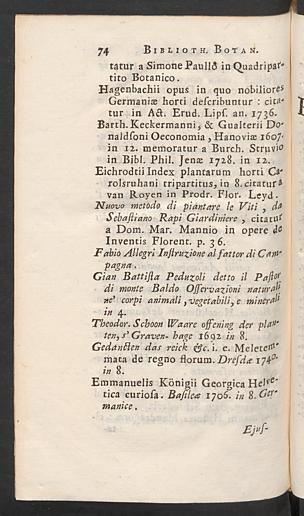 74 BIBLIOTH. BOTAN.
tatur a Simone Paullo in Quadripar-
tito Botanico.
Hagenbachii opus in quo nobiliores
Germaniæ horti describuntur : cita-
tur in Act. Erud. Lips. an. 1736.
Barth. Keckermanni, & Gualterii Do-
naldsoni Oeconomia, Hanoviæ 1607.
in 12. memoratur a Burch. Struvio
in Bibl. Phil. Jenæ 1728. in 12.
Eichrodtii Index plantarum horti Ca-
rolsruhani tripartitus, in 8. citatur a
van Royen in Prodr. Flor. Leyd.
Nuovo metodo di piantare le Viti, da
Sebastiano Rapi Giardiniere, citatur
a Dom. Mar. Mannio in opere de
Inventis Florent. p. 36.
Fabio Allegri Instruzione al fattor di Cam-
pagna.
Gian Battista Peduzoli detto il Pastor
di monte Baldo Osservazioni naturali
ne' corpi animali, vegetabili, e minerali
in 4.
Theodor. Schoon Waare offening der plan-
ten, s' Graven-hage 1692 in 8.
Gedanclen das reick &c. i. e. Meletem-
mata de regno florum. Dresdæ 1740.
in 8.
Emmanuelis Königii Georgica Helve-
tica curiosa. Basileæ 1706. in 8. Ger-
manice.
Ejus-